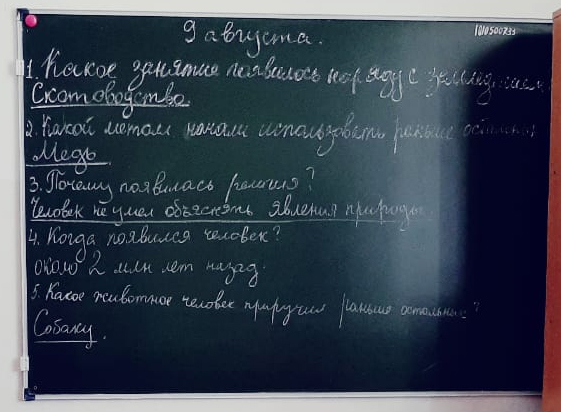 9 августа.
1010500733
1. Какое занятие появилось наряду с земледелием
Скотоводство
2. Какой металл начали использовать раньше остальных
Медь.
3. Почему появилась религия?
Человек не умел объяснять явления природы.
4. Когда появился человек?
около 2 млн лет назад.
5. Какое животное человек приручил раньше остальных?
Собаку.